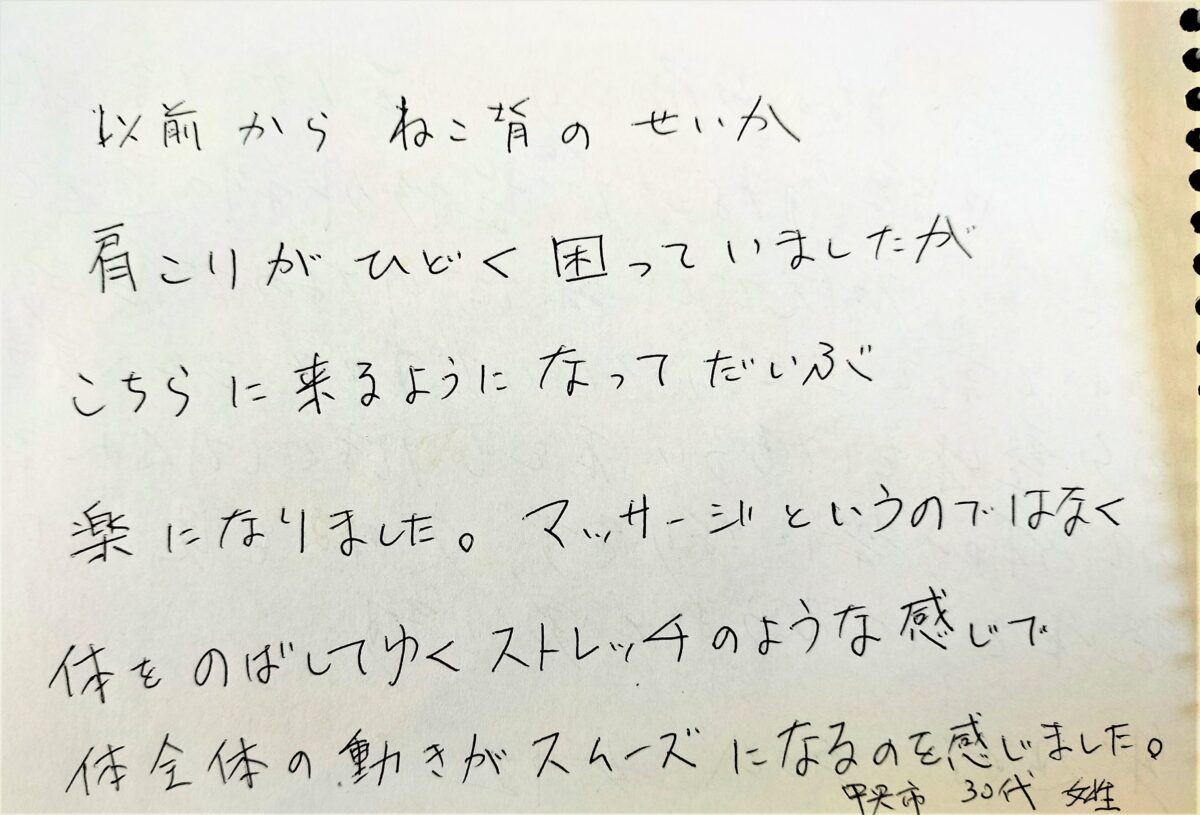 以前から ねこ背の せいか
肩こりが ひどく 困っていましたが
こちらに来るように なって だいぶ
楽になりました。マッサージというのではなく
体を のばしてゆくストレッチのような感じで
体全体の動きがスムーズになるのを感じました。
中央市 30代 女性